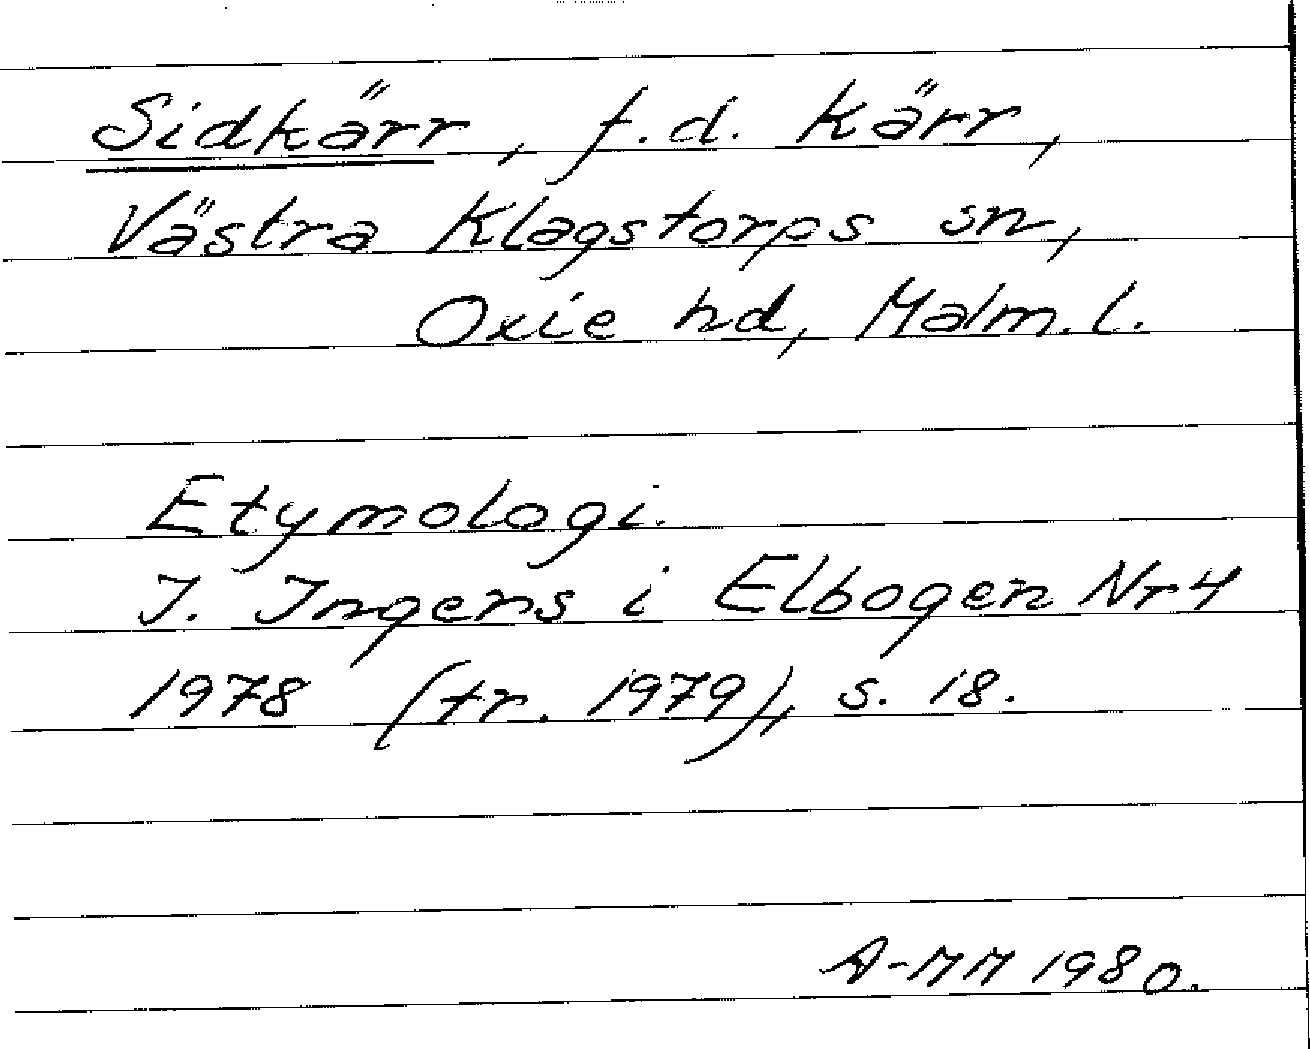 Sidkärr, f.d. kärr,
Västra Klagstorps sn,
Oxie hd, Malm.l.
Etymologi.
I. Ingers i Elbogen Nr 4
1978 (tr. 1979), s. 18.
A-MM 1980.